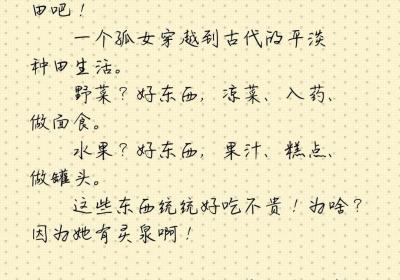 田吧！
一个孤女穿越到古代的平淡
种田生活。
野菜？好东西，凉菜、入药、
做面食。
水果？好东西，果汁、糕点、
做罐头。
这些东西统统好吃不贵！为啥？
因为她有灵泉啊！